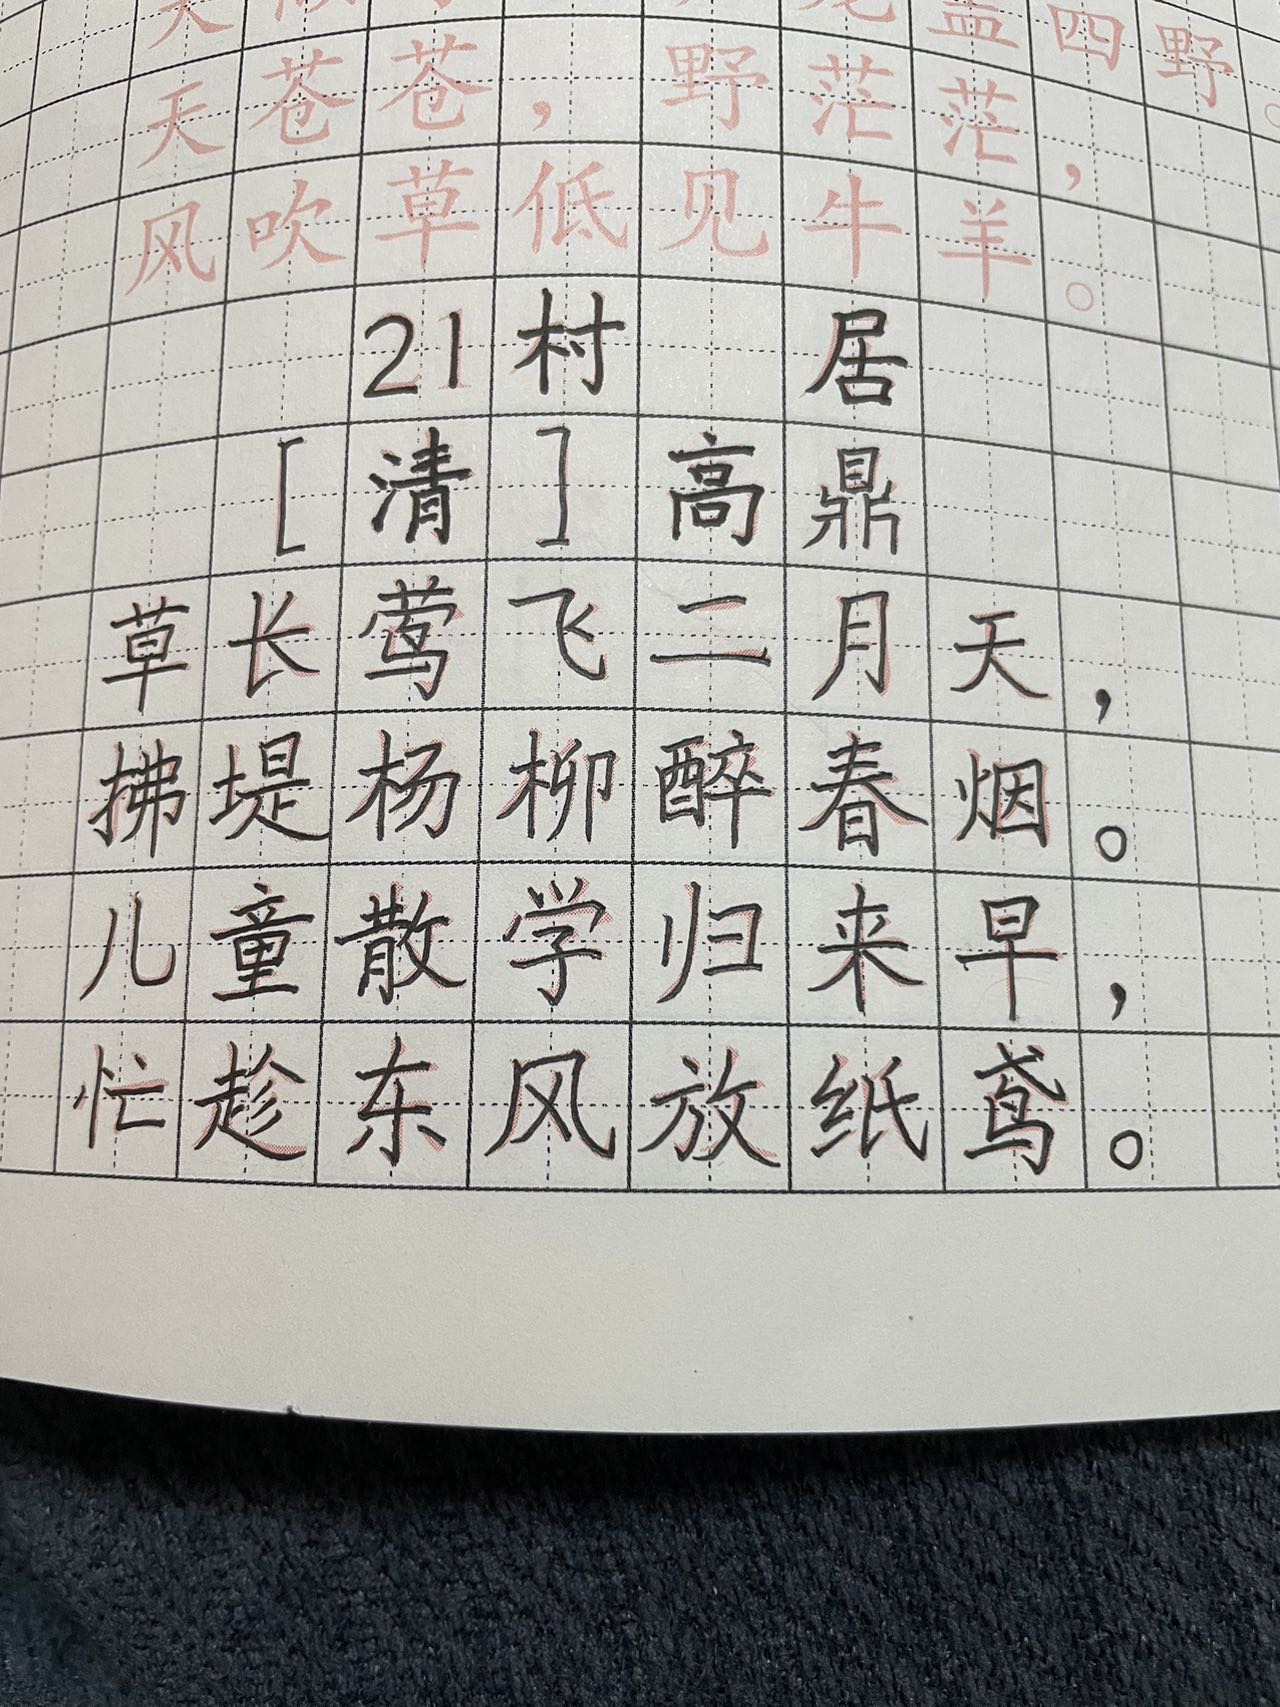 盖四野。
天苍苍，野茫茫，
风吹草低见牛羊。
21村 居
[清]高鼎
草长莺飞二月天，
拂堤杨柳醉春烟。
儿童散学归来早，
忙趁东风放纸鸢。